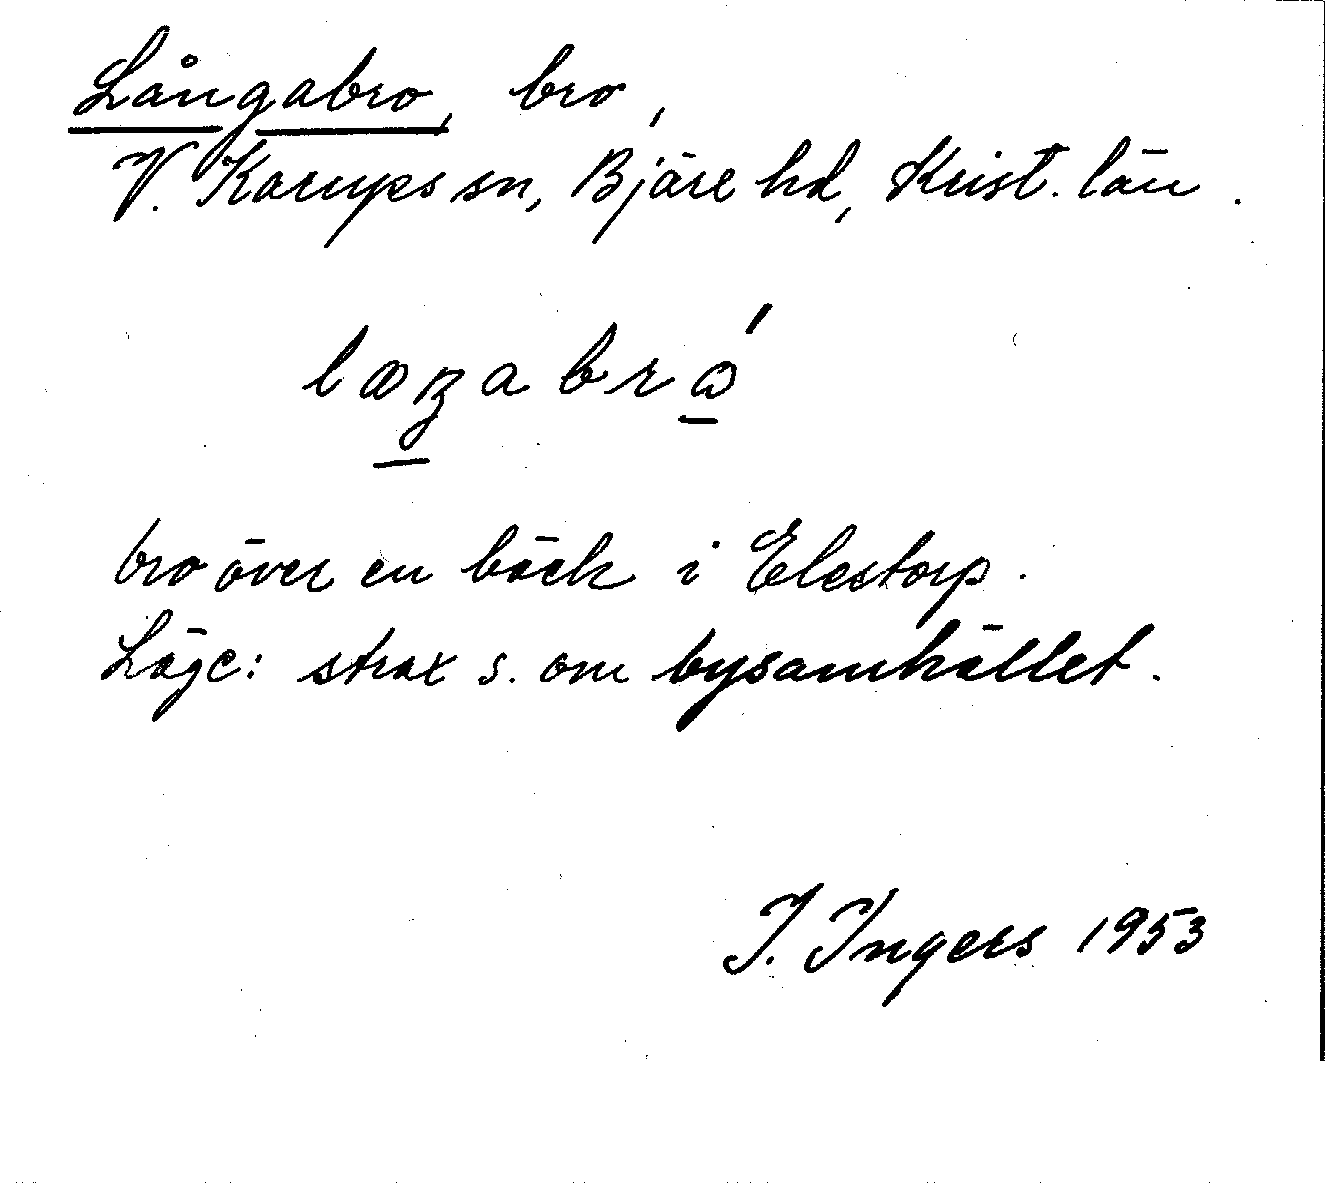 Långabro, bro,
V. Karups sn, Bjäre hd, Krist. län.
bro över en bäck i Elestorp.
Läge: strax s. om bysamhället.
I. Ingers 1953